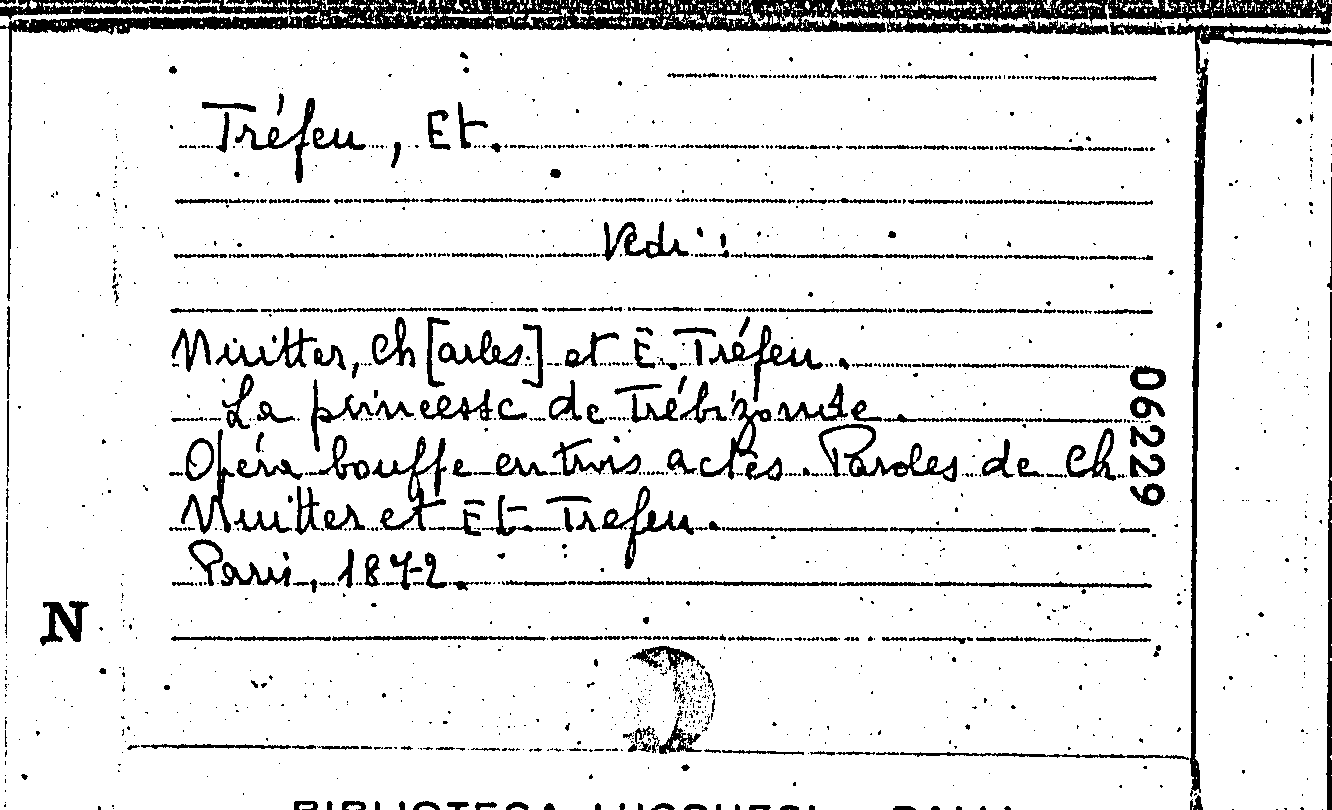 Tréfeu, Et.
Vedi:
Nuitter, Ch[arles] et E. Tréfeu.
La princesse de Trébizonde.
Opéra bouffe en trois actes. Paroles de Ch
Nuitter et Et. Trefeu.
Paris, 1872.
06229
N
BIBLIOTECA LUCCHESI - PALLI